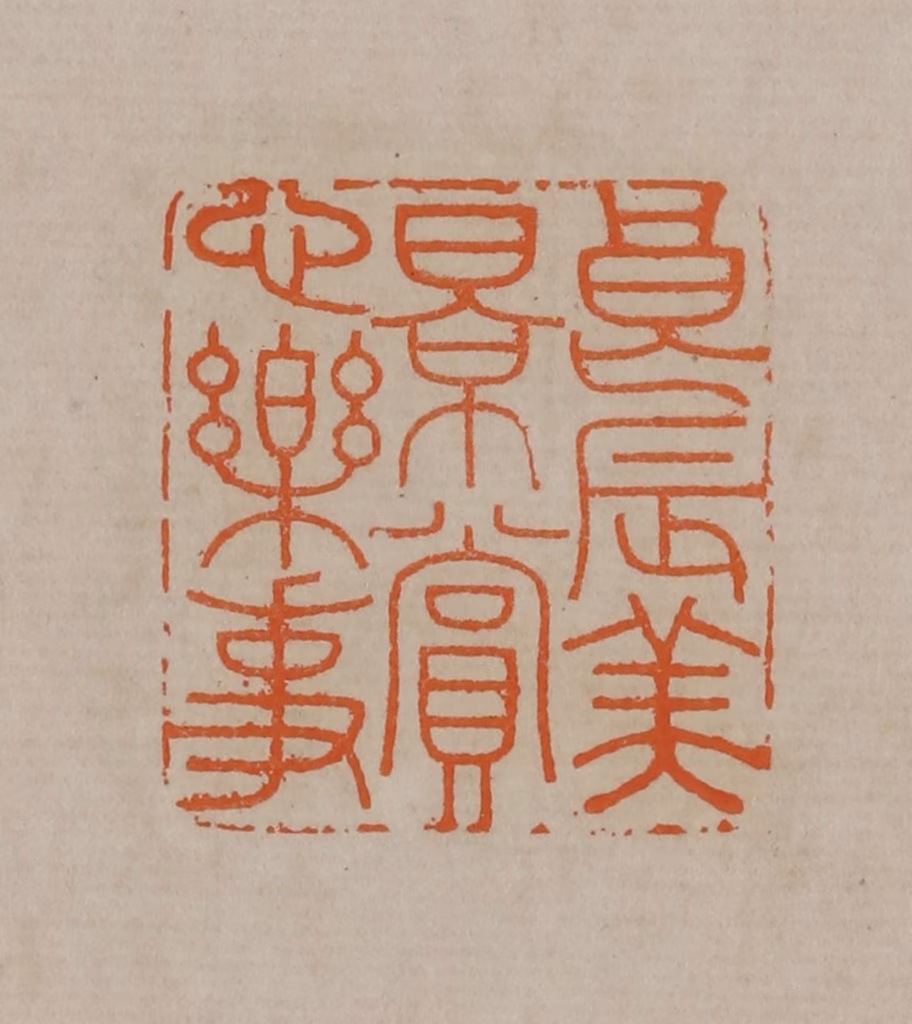 良辰美
景賞
心樂事